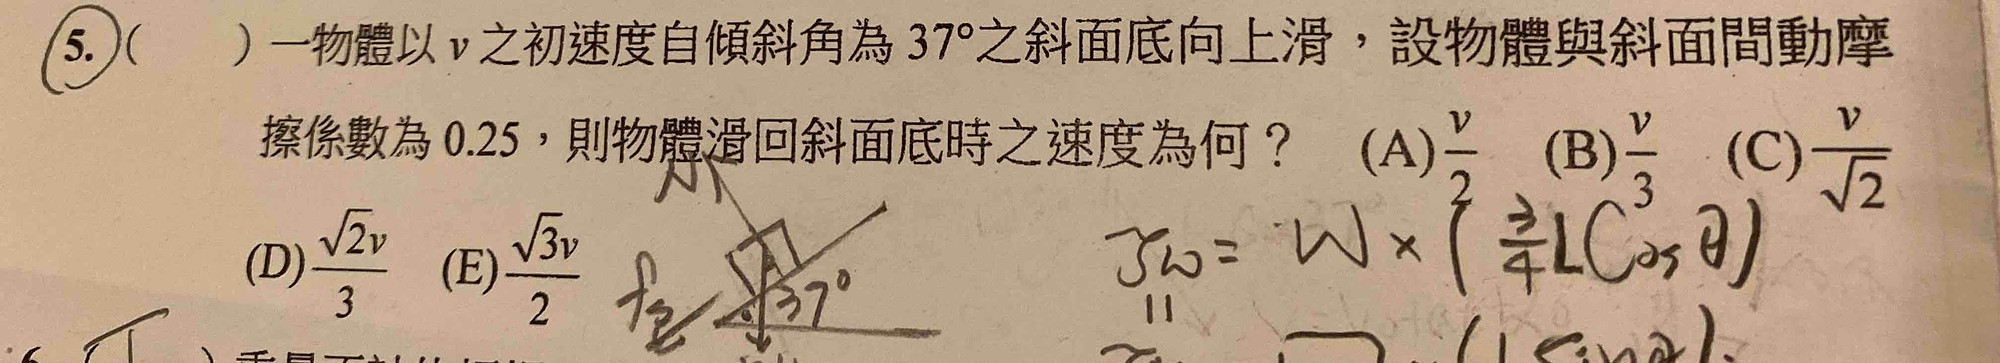 5. (　　) 一物體以 v 之初速度自傾斜角為 37°之斜面底向上滑，設物體與斜面間動摩
擦係數為 0.25，則物體滑回斜面底時之速度為何？ (A) v/2 (B) v/3 (C) v/√2
(D) √2v/3 (E) √3v/2
N
37°
= W × (3/4 L Cos θ)